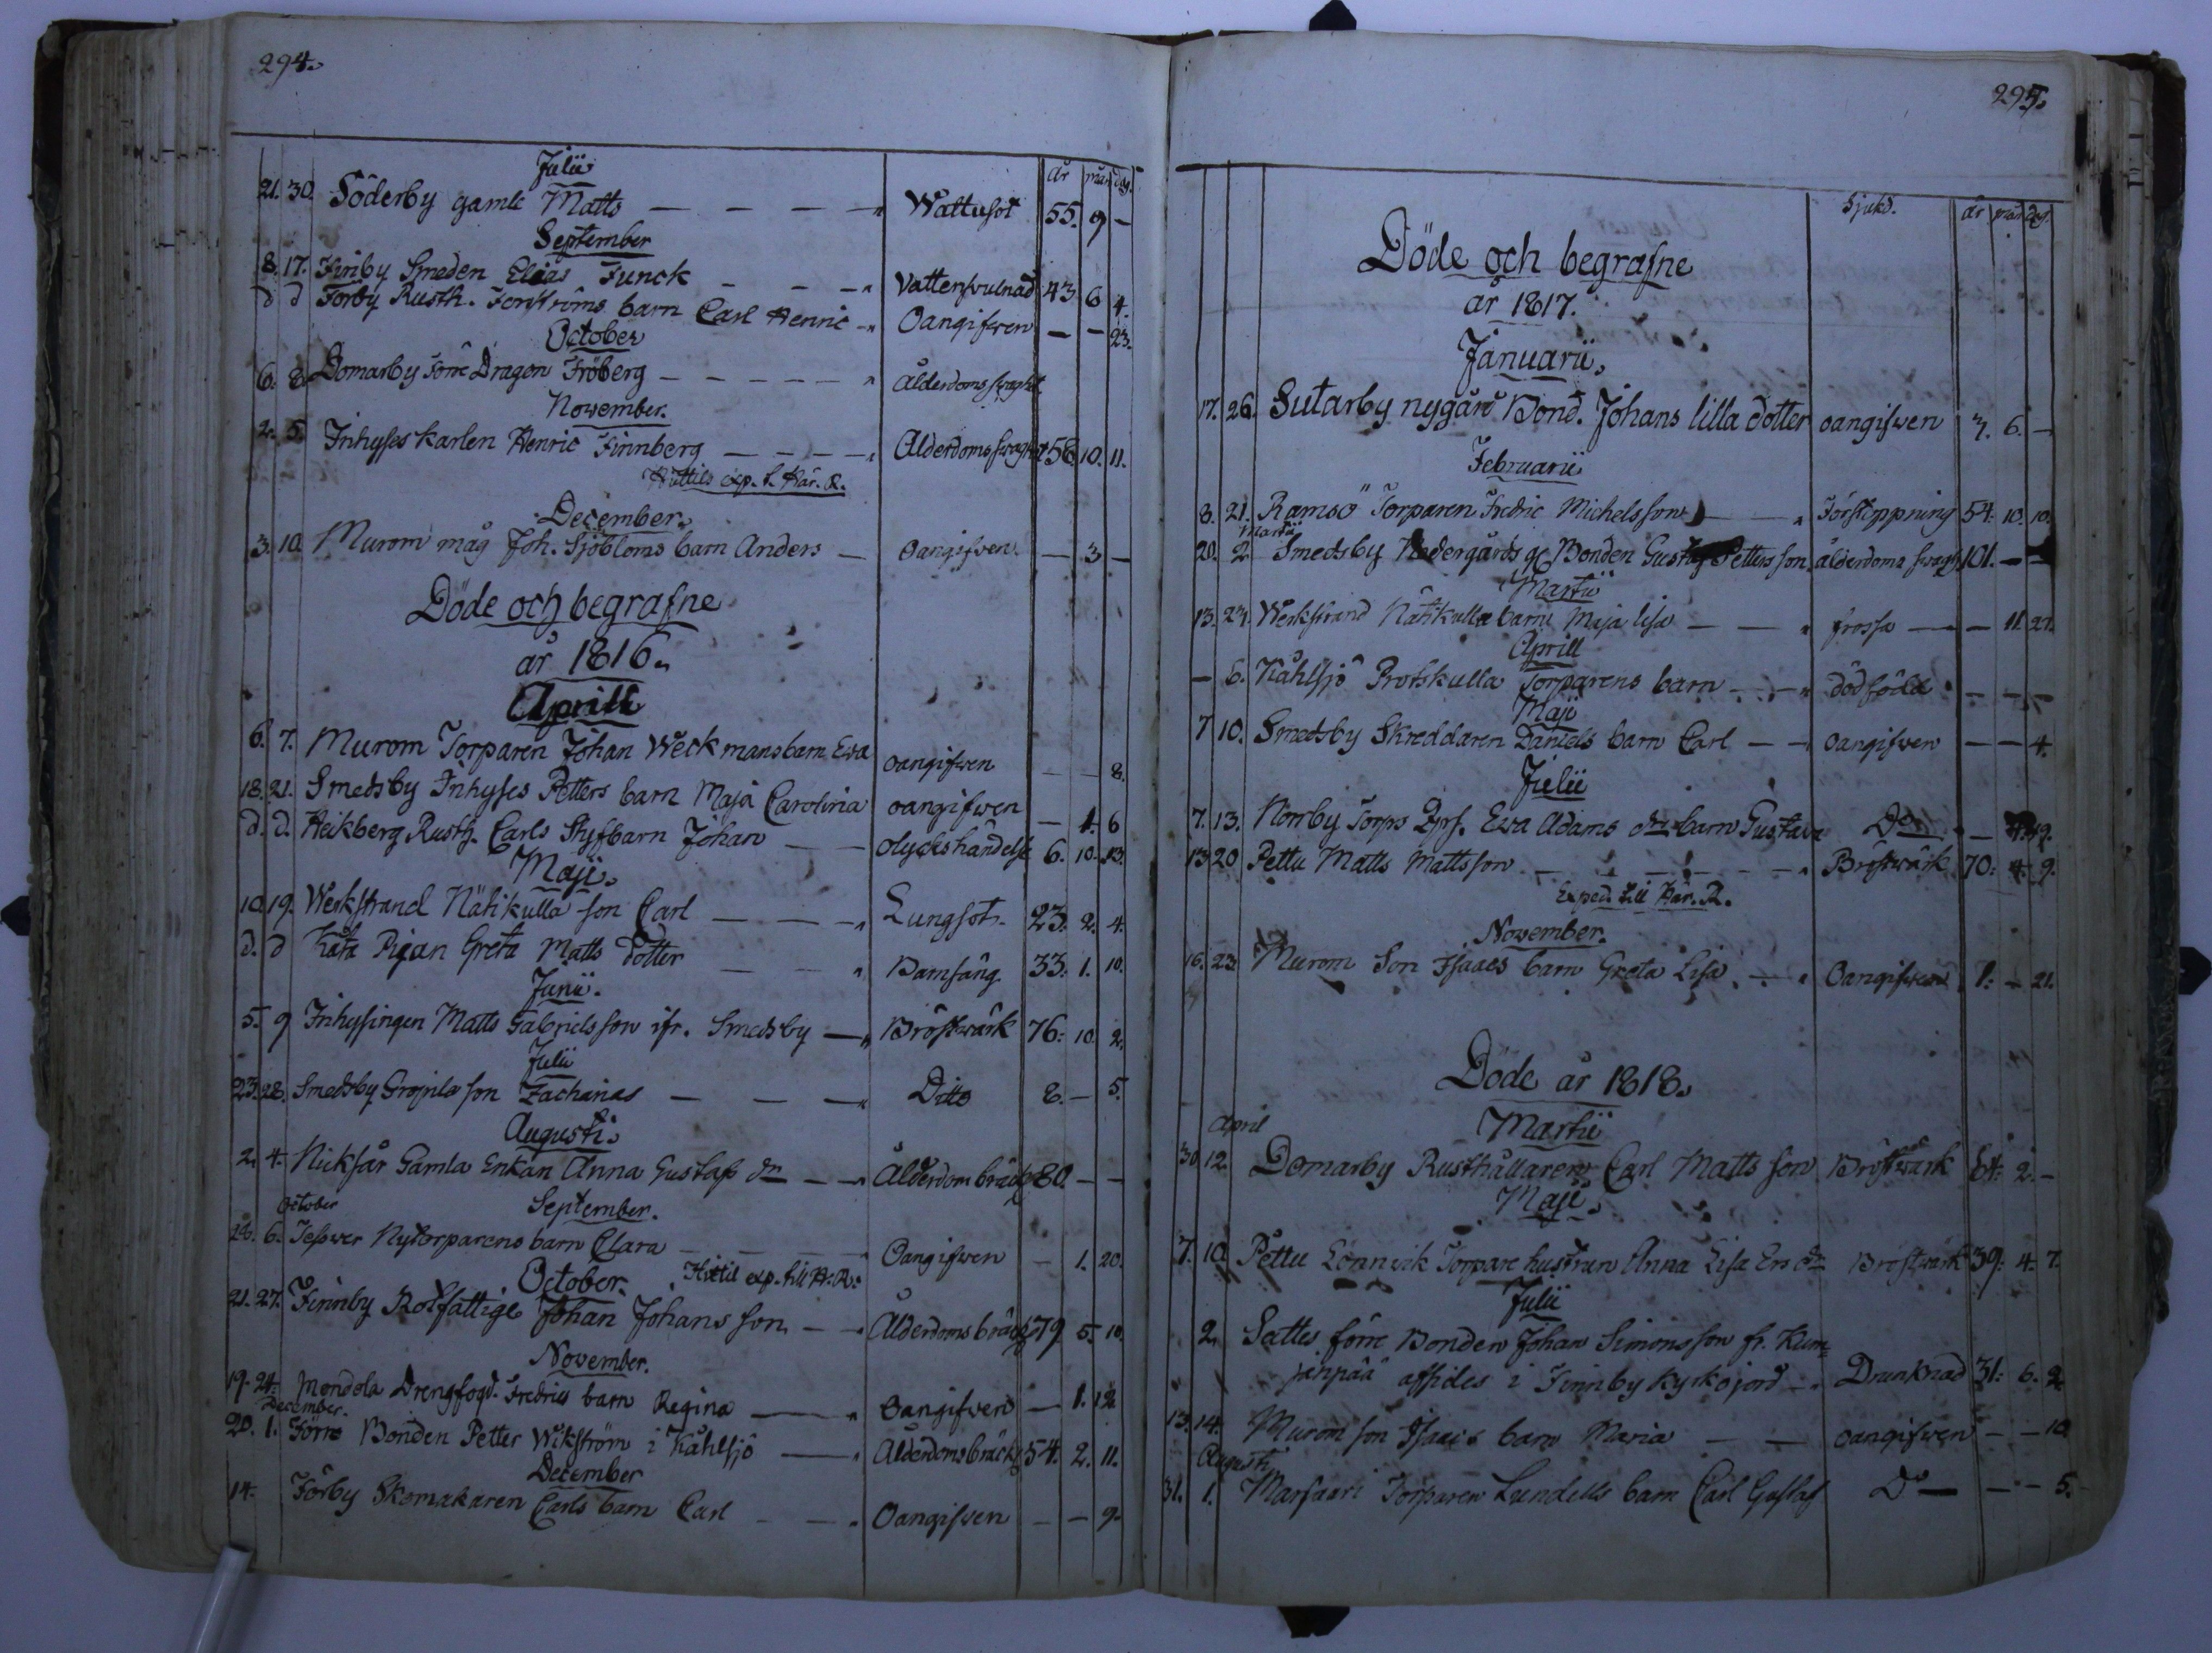 294.
Julii
år mån dag.
21. 30. Söderby gamle Matts — — — — " Wattusot 55. 9 —
September
8. 17. Finby Smeden Elias Funck — — — " Vattensvulnad 43 6 4.
d d Förby Rusth. Forsströms barn Carl Henric — " Oangifven — — 23.
October
6. 8. Domarby förre Dragon Fröberg — — — — — " ålderdoms svaght
November.
2. 5. Inhyses karlen Henric Finnberg — — — — " Ålderdoms svaght 58. 10. 11.
Hittils exp. t. Här. R.
December.
3. 10. Murom måg Joh. Sjöbloms barn Anders — Oangifven. — 3 —
Döde och begrafne
år 1816.
Aprill
6. 7. Murom Torparen Johan Weckmans barn Ewa oangifven — — 8.
18. 21. Smedsby Inhyses Petters barn Maja Carolina oangifven — 1. 6
d. d. Heikberg Rusth. Carls Styfbarn Johan — — olyckshändelse 6. 10. 13.
Maji.
10. 19. Werkstrand Nätikulla son Carl — — — " Lungsot. 23. 2. 4.
d. d Pigan Greta Matts dotter — — " Barnsäng. 33. 1. 10.
Junii.
5. 9 Inhysingen Matts Gabrielsson ifr. Smedsby — " Bröstwärk 76: 10. 2.
Julii
23. 28. Smedsby son Zacharias — — — " Ditto 8. — 5.
Augusti.
2. 4. Nicksår Gamla Enkan Anna Gustafs dr — — " Ålderdom bräckl 80. — —
September.
October
26. 6. Tesswer Nytorparens barn Clara — — Oangifven — 1. 20.
October. Hittil exp. till H. R.
21. 27. Finnby Rotfattige Johan Johansson — — " Ålderdoms bräckl 79 5. 10.
November.
19. 24. Mondola Drengfogd. Fredrics barn Regina — — " Oangifven — 1. 12
December.
20. 1. Förre Bonden Petter Wikström i Kåhlsjö — — " Ålderdomsbräckl 54. 2. 11.
December
14. Förby Skomakaren Carls barn Carl — — " Oangifven — — 9.
295.
Sjukd. år mån dag.
Döde och begrafne
år 1817.
Januarii.
17. 26. Sutarby nygård Bond. Johans lilla dotter oangifven 3. 6. —
Februarii
8. 21. Ramsö Torparen Fredric Michelsson — — " Förstoppning 54. 10. 10.
Martii
20. 2. Smedsby Nedergårds g. Bonden Gustaf Pettersson. ålderdoms svagh. 101. — —
Martii
13. 23. Werkstrand Nätikulla barn Maja lisa — — " frossa — — 11. 27.
Aprill
— 6. Kåhlsjö Protskulla Torparens barn — — " dödfödd — — —
Maji
7 10. Smedsby Skreddaren Daniels barn Carl — — oangifven — — 4.
Julii
7. 13. Norrby Torps Ewa Adams dr barn Gustava Do — 19.
13 20 Pettu Matts Mattsson — — — — — " Bröstwärk 70: 4. 9.
Exped. till Här. R.
November.
16. 23 Murom Son Isaacs barn Greta Lisa — " Oangifven 1: — 21.
Döde år 1818.
Martii
April
30. 12. Domarby Rusthållaren Carl Mattsson Bröstwärk 64: 2. —
Maji.
7. 10. Pettu Lönnwik Torpare hustrun Anna Lisa Ers dr Bröstwärk 39: 4. 7.
Julii
2. Sattes förre Bonden Johan Simonsson fr. Kum=
panpää affides i Finnby kyrkojord — " Drunknad 31: 6. 2
13. 14. Murom son Isaacs barn Maria — — oangifven — — 10
Augusti
31. 1. Marsaari Torparen Lundells barn Carl Gustaf Do — — — 5.